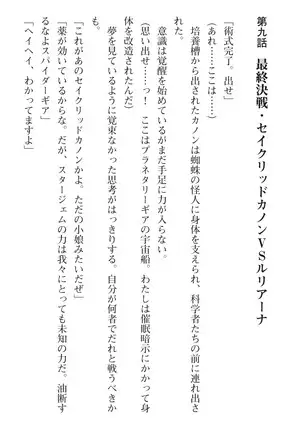 第九話　最終決戦・セイクリッドカノンVSルリアーナ
「術式完了。出せ」
（あれ……ここは……）
　培養槽から出されたカノンは蜘蛛の怪人に身体を支えられ、科学者たちの前に連れ出さ
れた。
　意識は覚醒を始めているがまだ手足に力が入らない。
（思い出せ……っ！　ここはプラネタリーギアの宇宙船。わたしは催眠暗示にかかって身
体を改造されたんだ）
　夢を見ているように覚束なかった思考がはっきりする。自分が何者と戦うべきか
「これがあのセイクリッドカノンかよ。ただの小娘みたいだぜ」
「薬が効いているからな。だが、スタージェムの力は我々にとっても未知の力だ。油断す
るなよスパイダーギア」
「ヘイヘイ、わかってますよ」